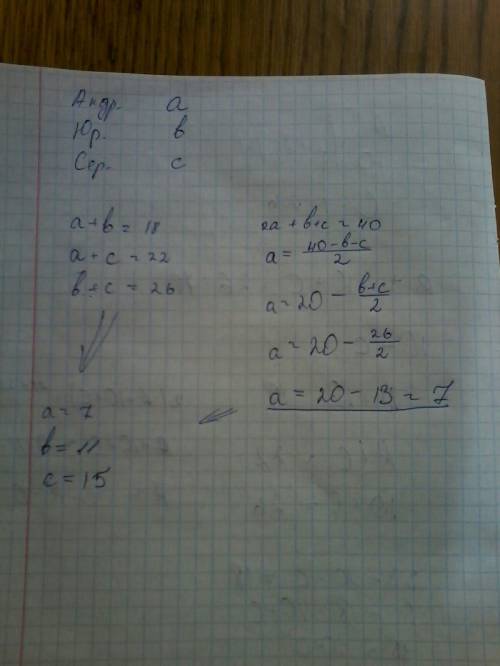 Андр. а
Юр. в
Сер. с
а+в = 18
а+с = 22
в+с = 26
2а + в+с = 40
а = 40-в-с / 2
а = 20 - в+с / 2
а = 20 - 26 / 2
а = 20 - 13 = 7
а = 7
в = 11
с = 15